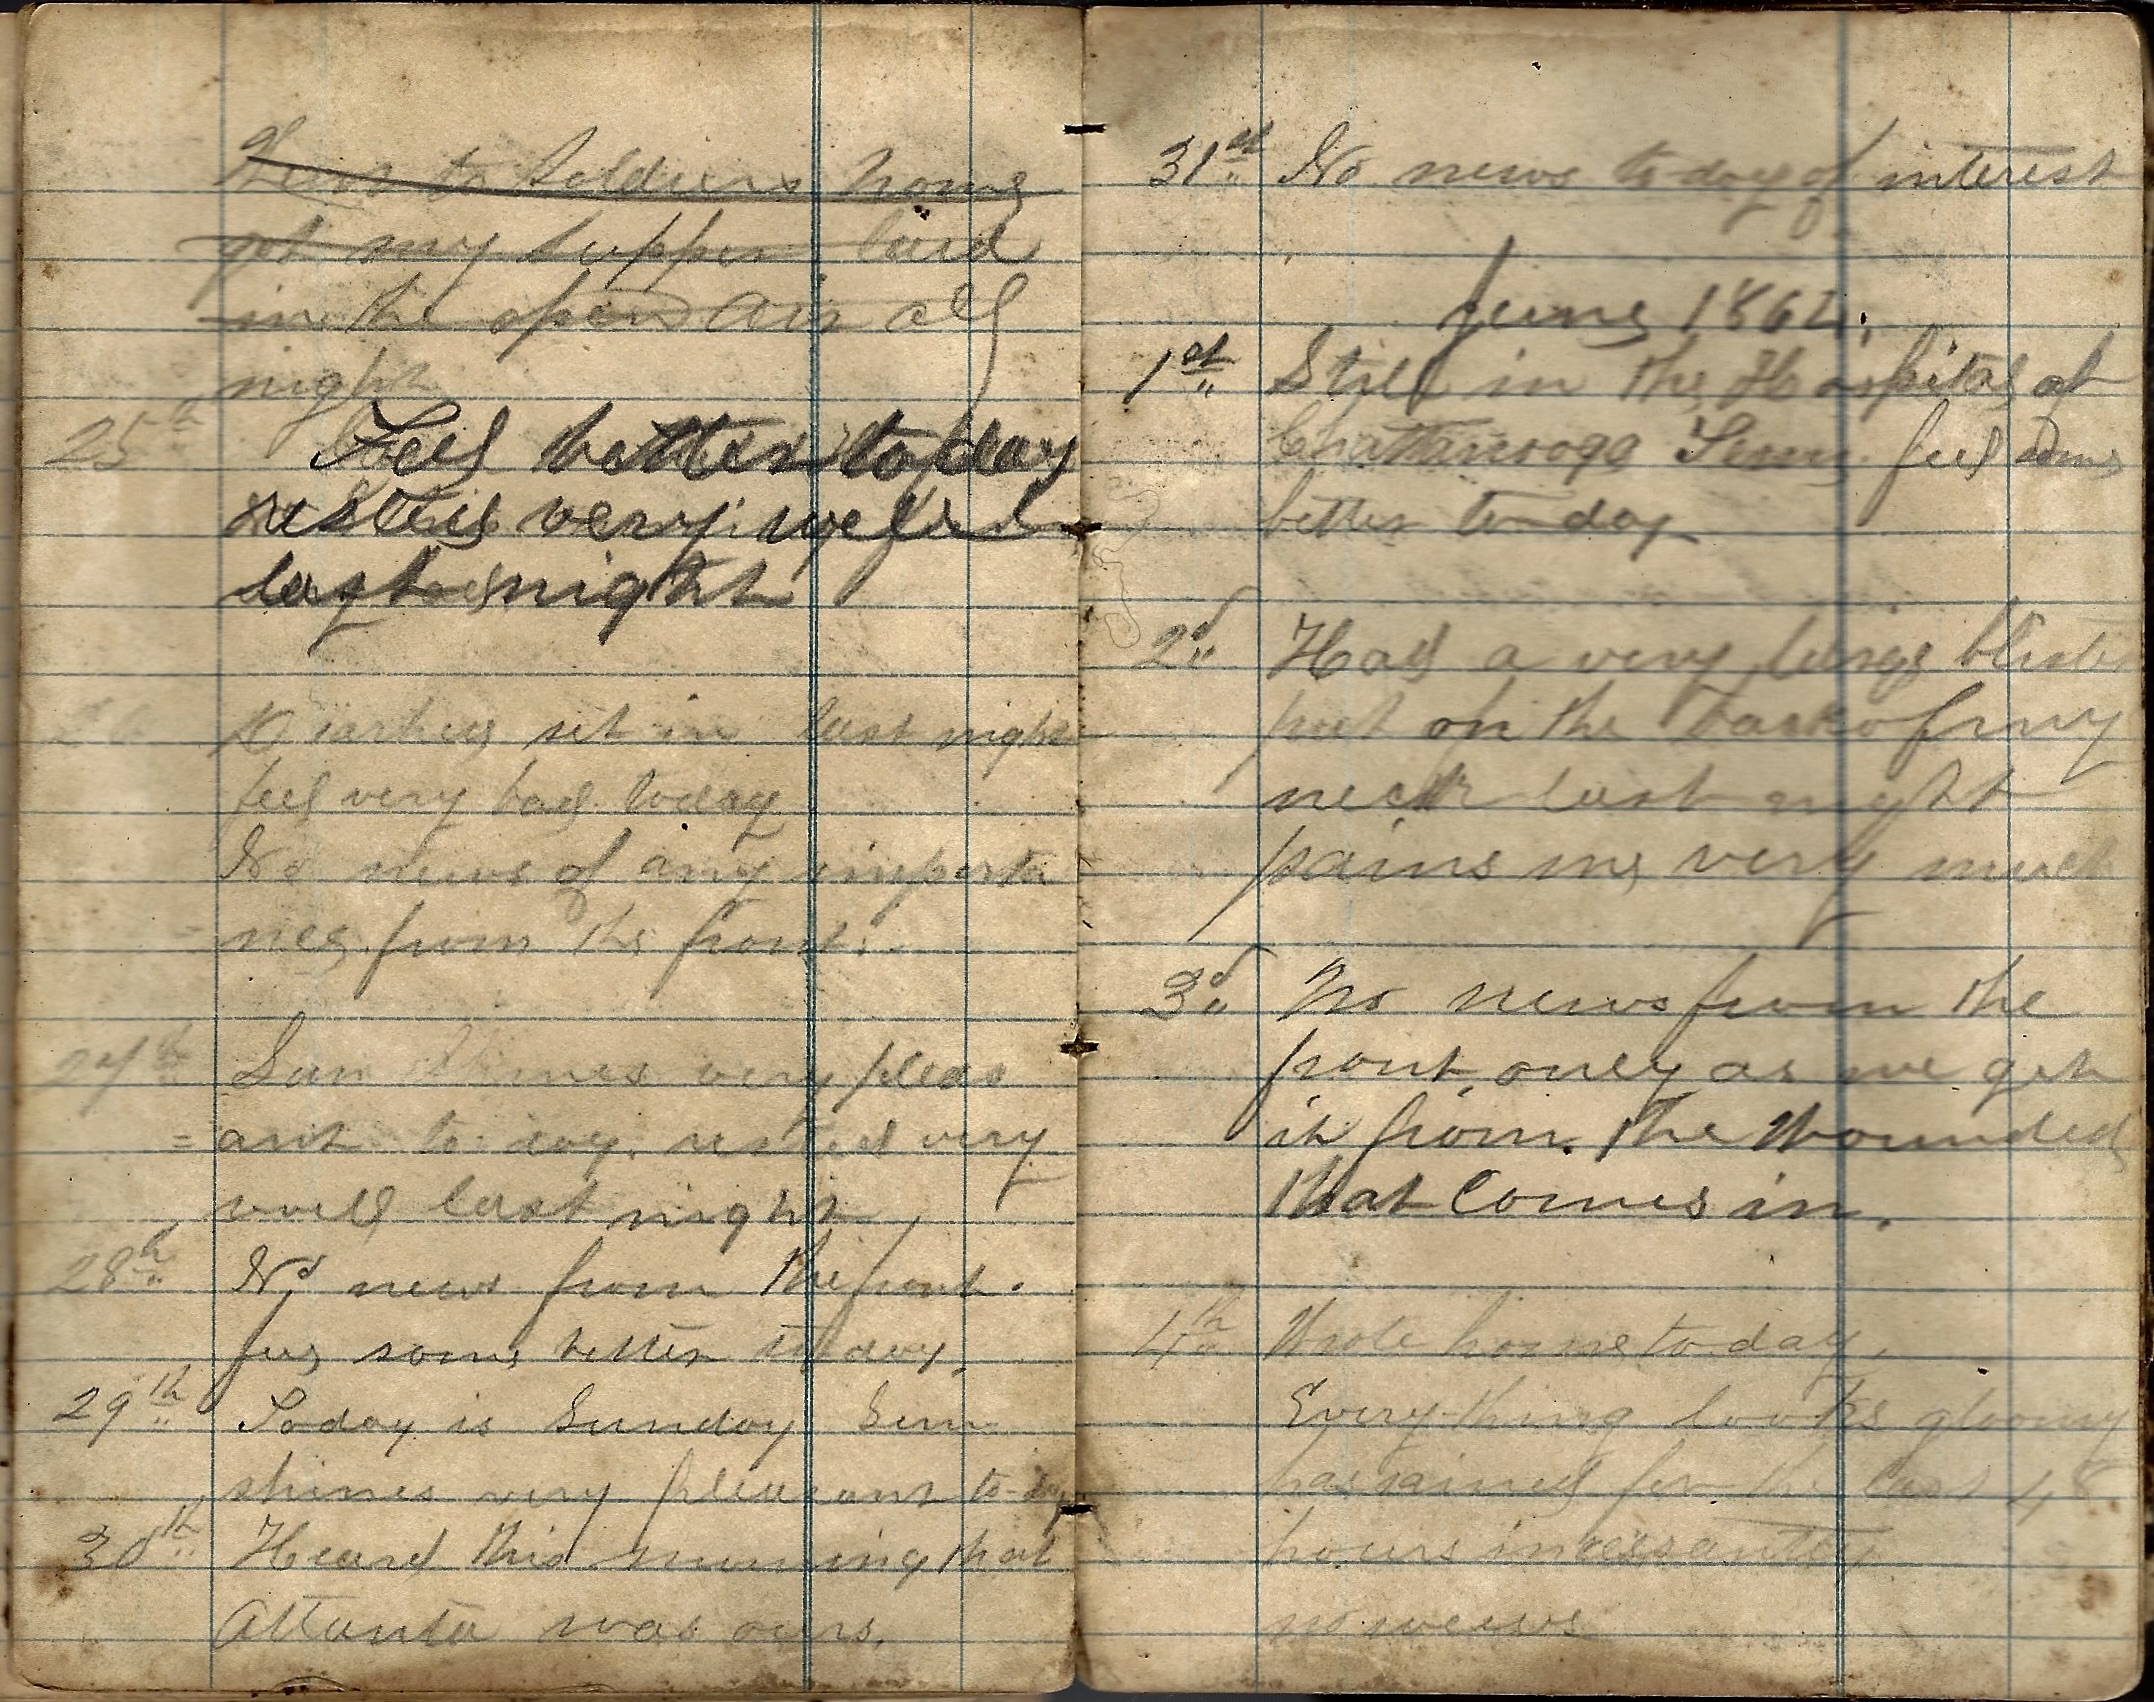 Went to Soldiers home
got my supper laid
in the open air all
night
25th Feel better today
rested very well
last night
26 Diarhea set in last night
feel very bad today
No news of any importa
nce from the front.
27th Sun Shines very pleas
= ant to-day. rested very
well last night
28th No news from the front.
feel some better to day.
29th Today is Sunday Sun
shines very pleasant to-day
30th Heard this morning that
Atlanta was ours.
31st No news today of interest
June 1864.
1st Still in the Hospital at
Chattanooga Tenn. feel some
better to-day
2d Had a very large blister
put on the back of my
neck last night
pains me very much
3d No news from the
front, only as we get
it from the Wounded
that Comes in.
4th Wrote home to-day.
Everything looks gloomy
has rained for the last 48
hours incessantly
no news